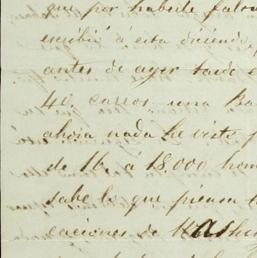 que por haberle falta
escribió á esta diciendo
antes de ayer tarde
40. carros, una Ba
ahora nada he visto p
de 16, á 18.000 hom
sabe lo que piensa
caciones de Washin